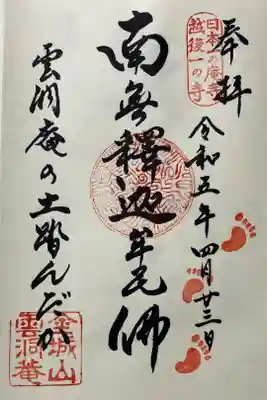 奉拝
日本の庵寺
越後一の寺
令和五年四月廿三日
南無釋迦牟尼佛
雲洞庵の土踏んだか
金城山
雲洞庵